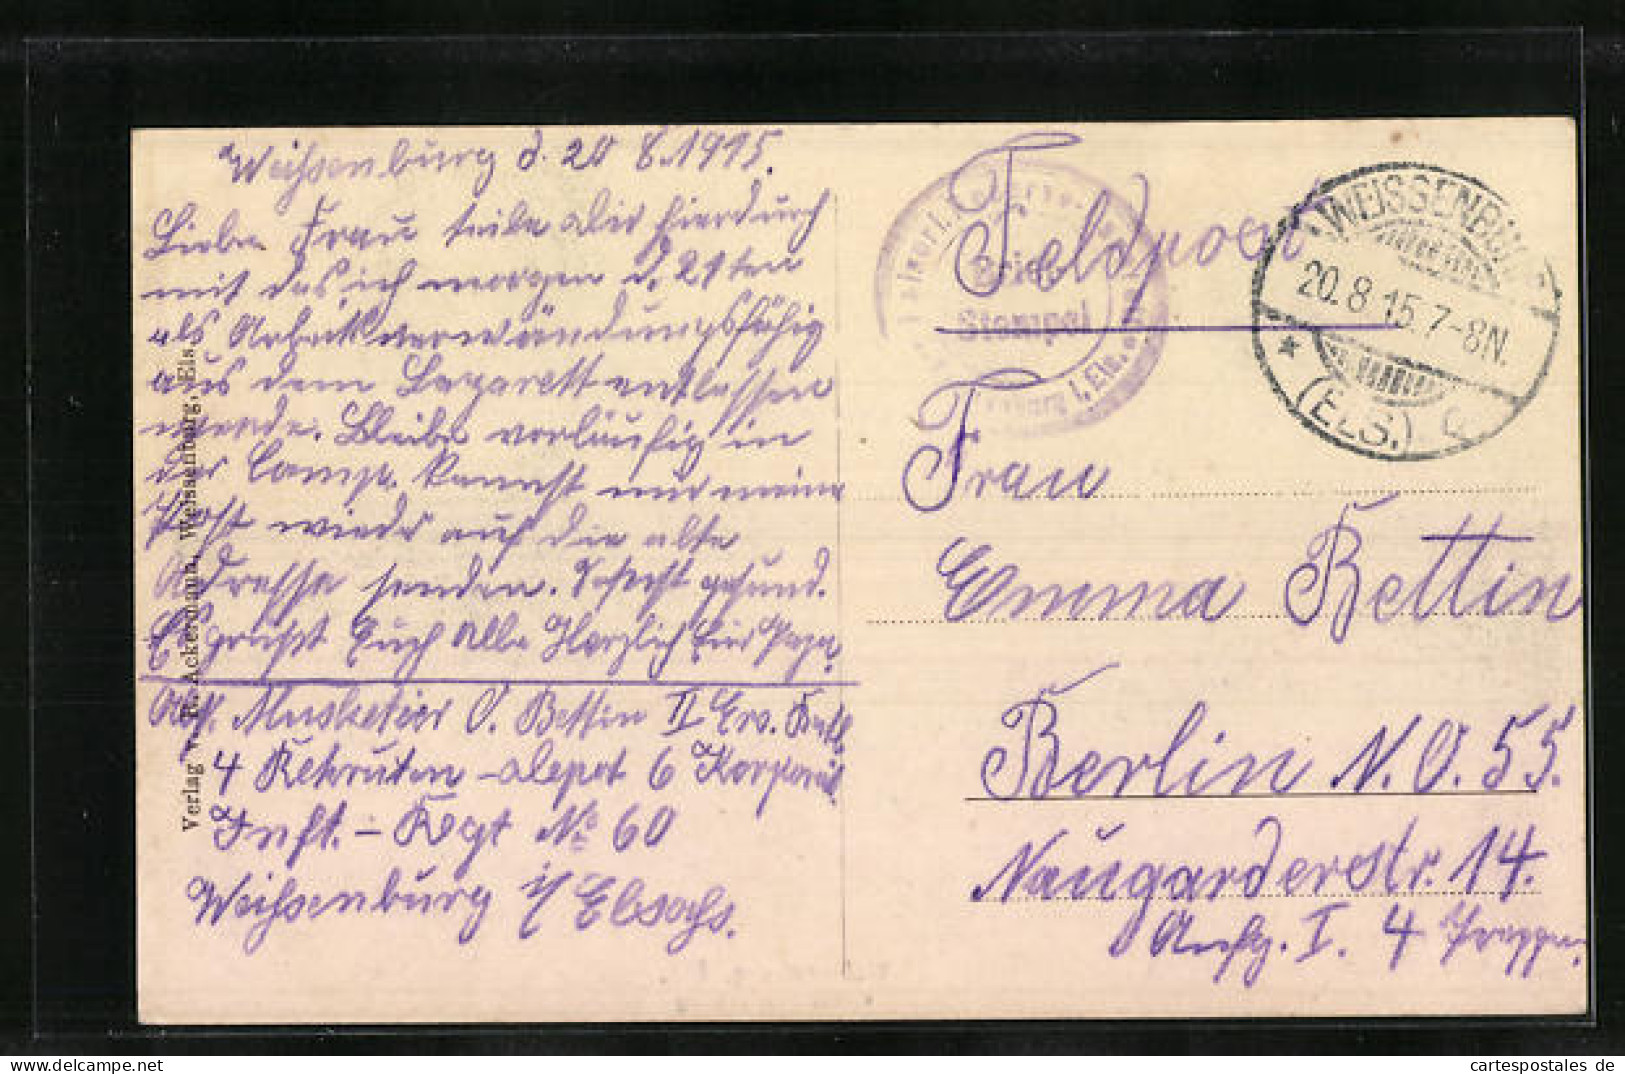 Weißenburg d. 20 8.1915.
Liebe Frau teile Dir hierdurch
mit das, ich morgen d. 21ten
als Arbeitsverwändungsfähig
aus dem Lazarett entlassen
werde. Bleibe vorläufig in
der Comp. kannst nur meine
Post wieder auf die alte
Adresse senden. gesund.
Es grüßt Euch Alle Herzlich Eür Papa,
Abs. Musketier O. Bettin II Ers. Batl.
4 Rekruten-depot 6 Korporal
Inft.-Regt No 60
Weißenburg i/ Elsaß.
Verlag v. Ackermann, Weissenburg, Els.
Feldpost
Brief
Stempel
WEISSENBURG
20.8.15.7-8N.
* (ELS.)
Frau
Emma Bettin
Berlin N.O. 55.
Naugarderstr. 14.
Aufg. I. 4 Treppen.
cartespostales de